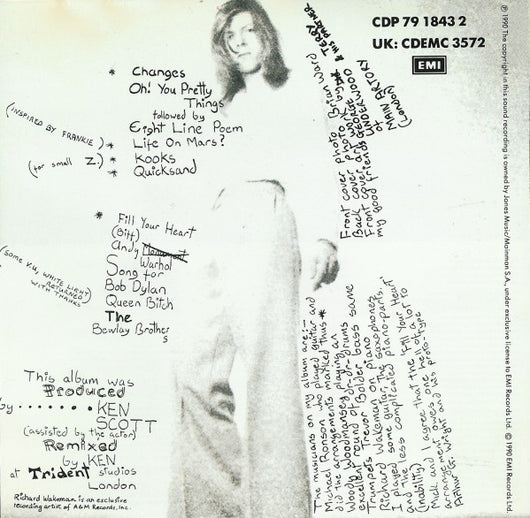 CDP 79 1843 2
UK: CDEMC 3572
EMI
* Changes
Oh! You Pretty
Things
followed by
Eight Line Poem
(INSPIRED BY FRANKIE) * Life On Mars?
(for small Z.) * Kooks
* Quicksand
* Fill Your Heart
(Biff)
Andy
Warhol
Song for
Bob Dylan
(some V.U. WHITE LIGHT
RETURNED
WITH THANKS)
Queen Bitch
The
Bewlay Brothers
This album was
Produced
by........KEN
SCOTT
(assisted by the actor)
Remixed
by KEN
at Trident studios
London
Richard Wakeman is an exclusive
recording artist of A&M Records, Inc.
Front cover photo Brian Ward
Back cover photo
TERRY
& his PARTNER
my good friend
MAIN ARTERY
(London)
The musicians on my album are:-
Michael Ronson who played guitar and
did the arrangements marked thus *
Woody Woodmansey playing an
excellent round of dr-dr-drums
Trumpets Trevor Bolder bass same
Richard Wakeman on piano
I played some guitar, the saxophones
and the less complicated piano-parts.
(inability) I agree that the 'Fill Your Heart'
arrangement owes one hell of a lot to
Arthur G. Wright and his proto-type
℗ 1990 The copyright in this sound recording is owned by Jones Music/Mainman S.A., under exclusive license to EMI Records Ltd. © 1990 EMI Records Ltd.